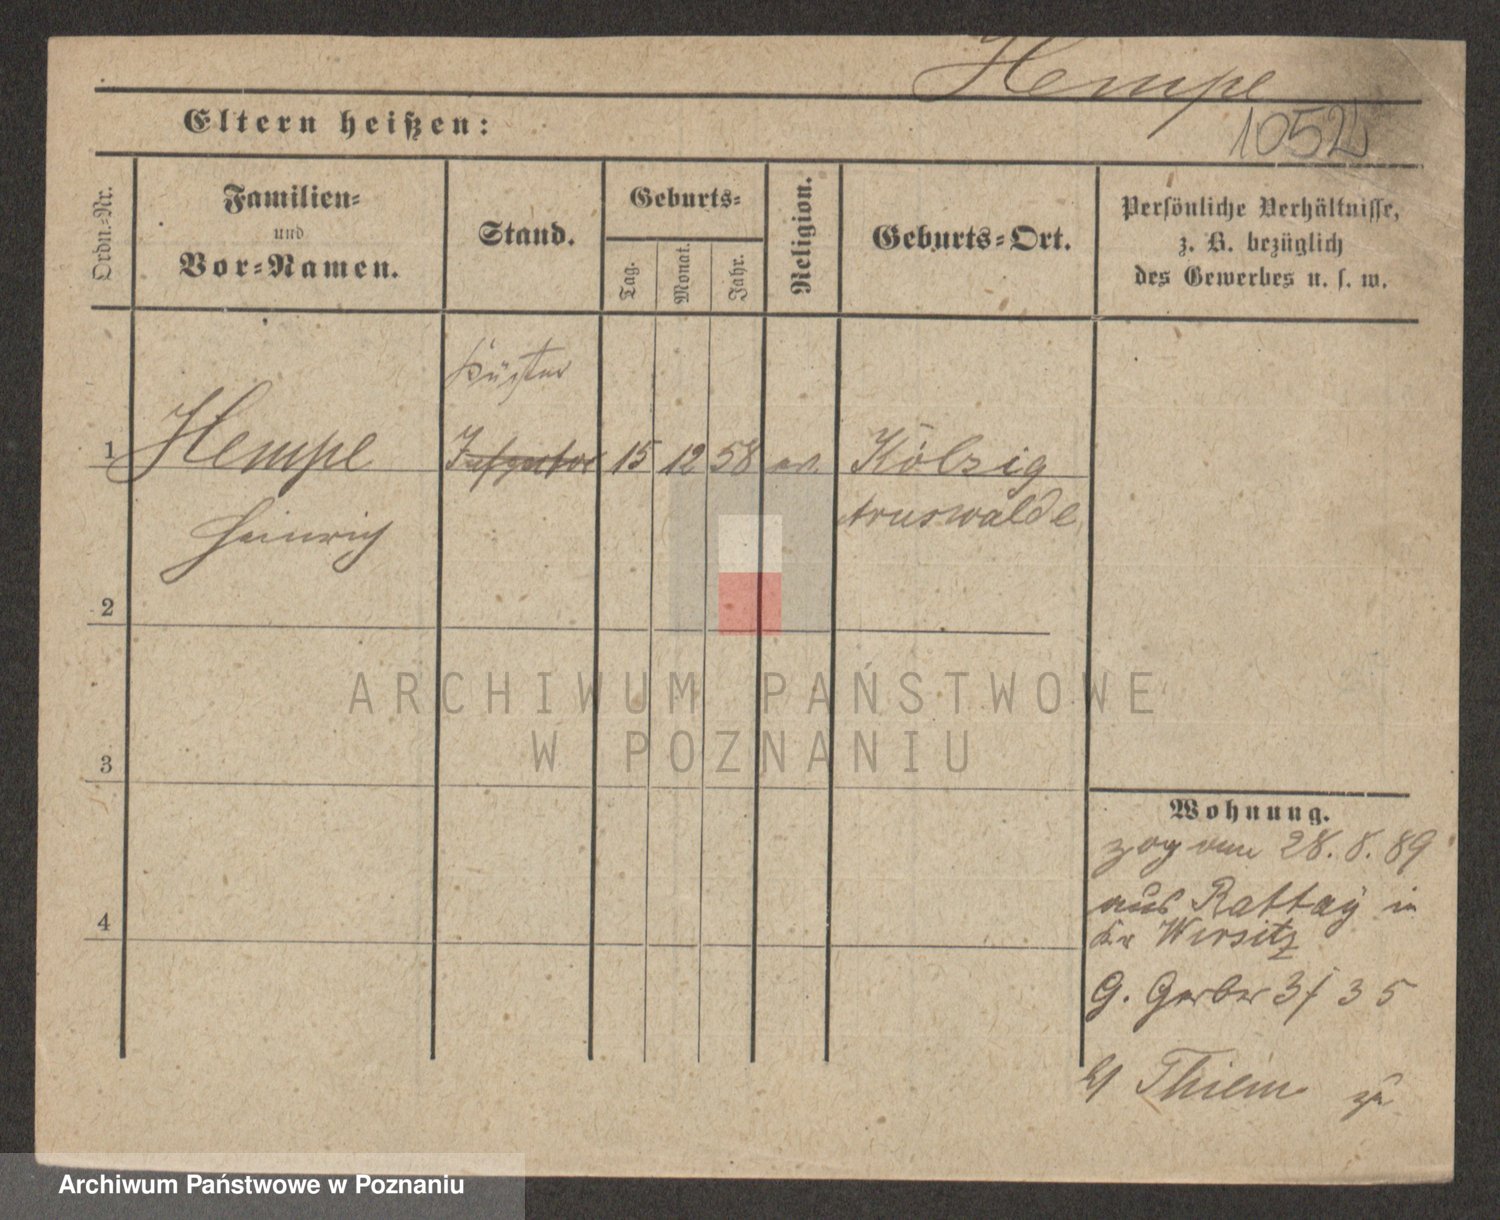 Hempe
1052
Eltern heißen:
Ordn.-Nr.
Familien-
und
Vor-Namen.
Stand.
Geburts-
Tag.
Monat.
Jahr.
Religion.
Geburts-Ort.
Persönliche Verhältnisse,
z. B. bezüglich
des Gewerbes u. s. w.
Küster
1 Hempe Inspector 15 12 58 ev. Kölzig
Heinrich Arnswalde
2
ARCHIWUM PAŃSTWOWE
W POZNANIU
3
Wohnung.
zog am 28. 8. 89
aus Rattay in
Kr Wirsitz
4
G. Gerber 3/ 35
b/ Thiem zu
Archiwum Państwowe w Poznaniu